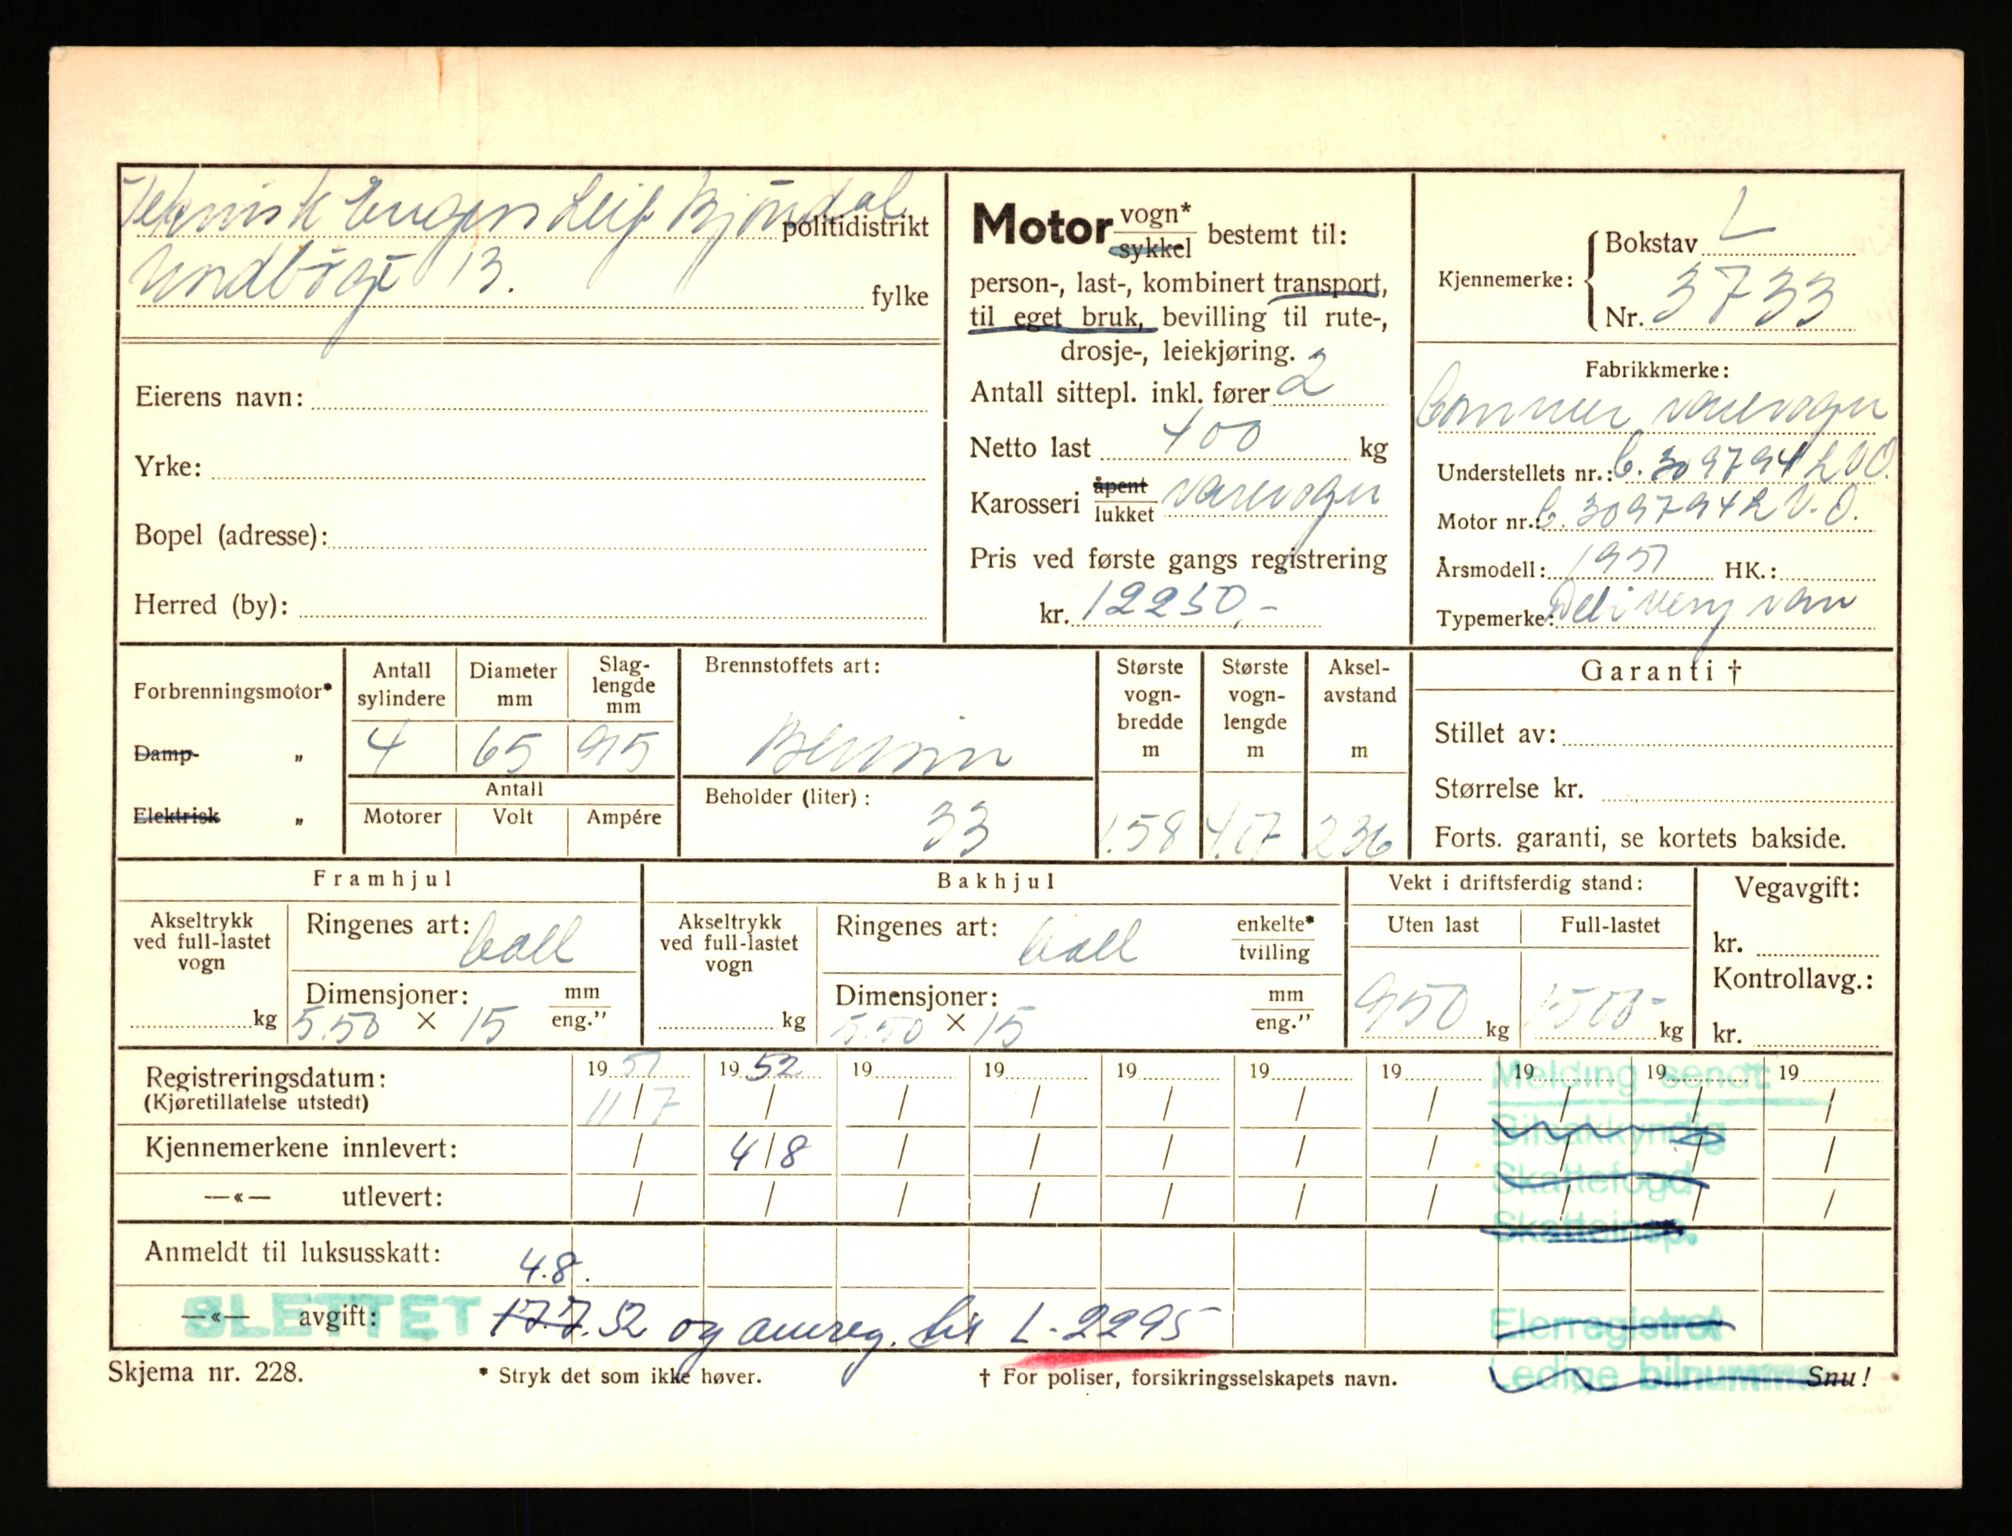 Teknisk Engros Leif Bjöndal politidistrikt
Nordbögt 13. fylke
Eierens navn:
Yrke:
Bopel (adresse):
Herred (by):
Motor vogn* sykkel bestemt til:
person-, last-, kombinert transport,
til eget bruk, bevilling til rute-,
drosje-, leiekjøring.
Antall sittepl. inkl. fører 2
Netto last 400 kg
Karosseri åpent lukket varevogn
Pris ved første gangs registrering
kr. 12250,-
Kjennemerke: Bokstav L
Nr. 3733
Fabrikkmerke:
Commer varevogn
Understellets nr.: C. 309794 L V O.
Motor nr.: C. 309794 L V. O.
Årsmodell: 1951 HK.:
Typemerke: Delivery van
Forbrenningsmotor*
Damp- „
Elektrisk „
Antall sylindere 4
Diameter mm 65
Slag-lengde mm 95
Antall
Motorer Volt Ampére
Brennstoffets art:
Bensin
Beholder (liter): 33
Største vogn-bredde m 1.58
Største vogn-lengde m 4.07
Aksel-avstand m 236
Garanti †
Stillet av:
Størrelse kr.
Forts. garanti, se kortets bakside.
Framhjul
Akseltrykk ved full-lastet vogn kg
Ringenes art: Coll
Dimensjoner: mm eng."
5.50 × 15
Bakhjul
Akseltrykk ved full-lastet vogn kg
Ringenes art: Coll enkelte* tvilling
Dimensjoner: mm eng."
5.50 × 15
Vekt i driftsferdig stand:
Uten last Full-lastet
950 kg 1500- kg
Vegavgift:
kr.
Kontrollavg.:
kr.
Registreringsdatum: 19 51 19 52 19 19 19 19 19 19 19 19
(Kjøretillatelse utstedt) 11/7 / / / / / / / / /
Kjennemerkene innlevert: / 4/8 / / / / / / / /
—«— utlevert: / / / / / / / / / /
Melding sendt
Bilsakkyndig
Skattefogd
Skatteinsp.
Eierregistret
Ledige bilnumme
Anmeldt til luksusskatt: 4.8.
SLETTET —«— avgift: 17.7.52 og omreg. til L-2295
Skjema nr. 228. * Stryk det som ikke høver. † For poliser, forsikringsselskapets navn. Snu!